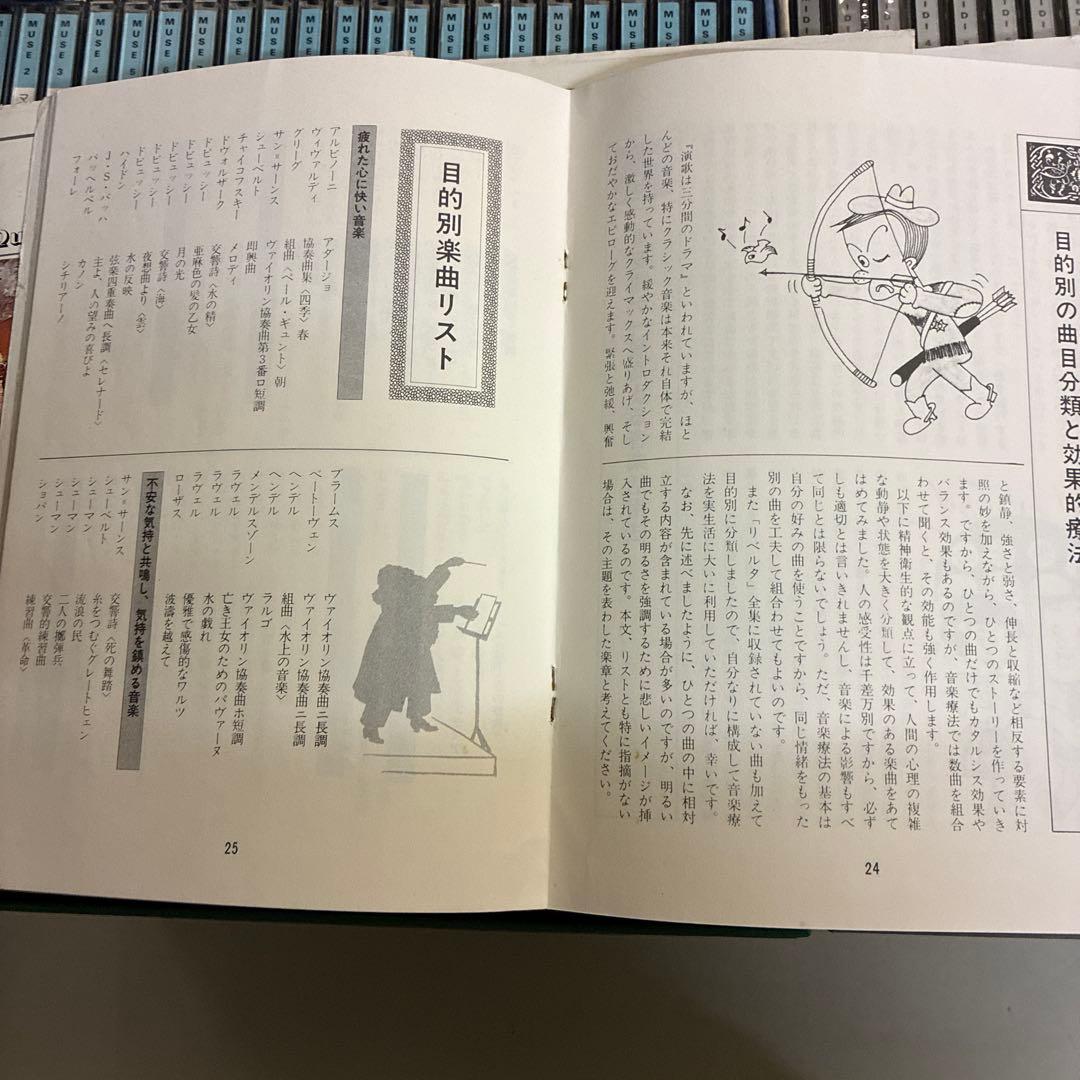 目的別の曲目分類と効果的療法
『演歌は三分間のドラマ』といわれていますが、ほと
んどの音楽、特にクラシック音楽は本来それ自体で完結
した世界を持っています。緩やかなイントロダクション
から、激しく感動的なクライマックスへ盛りあげ、そし
ておだやかなエピローグを迎えます。緊張と弛緩、興奮
と鎮静、強さと弱さ、伸長と収縮など相反する要素に対
照の妙を加えながら、ひとつのストーリーを作っていき
ます。ですから、ひとつの曲だけでもカタルシス効果や
バランス効果もあるのですが、音楽療法では数曲を組合
わせて聞くと、その効能も強く作用します。
以下に精神衛生的な観点に立って、人間の心理の複雑
な動静や状態を大きく分類して、効果のある楽曲をあて
はめてみました。人の感受性は千差万別ですから、必ず
しも適切とは言いきれませんし、音楽による影響もすべ
て同じとは限らないでしょう。ただ、音楽療法の基本は
自分の好みの曲を使うことですから、同じ情緒をもった
別の曲を工夫して組合わせてもよいのです。
また「リベルタ」全集に収録されていない曲も加えて
目的別に分類しましたので、自分なりに構成して音楽療
法を実生活に大いに利用していただければ、幸いです。
なお、先に述べましたように、ひとつの曲の中に相対
立する内容が含まれている場合が多いのですが、明るい
曲でもその明るさを強調するために悲しいイメージが挿
入されているのです。本文、リストとも特に指摘がない
場合は、その主題を表わした楽章と考えてください。
24
目的別楽曲リスト
疲れた心に快い音楽
アルビノーニ アダージョ
ヴィヴァルディ 協奏曲集〈四季〉春
グリーグ 組曲〈ペール・ギュント〉朝
サン=サーンス ヴァイオリン協奏曲第3番ロ短調
シューベルト 即興曲
チャイコフスキー メロディ
ドヴォルザーク 交響詩〈水の精〉
ドビュッシー 亜麻色の髪の乙女
ドビュッシー 月の光
ドビュッシー 交響詩〈海〉
ドビュッシー 夜想曲より〈雲〉
ドビュッシー 水の反映
ハイドン 弦楽四重奏曲ヘ長調〈セレナード〉
J・S・バッハ 主よ、人の望みの喜びよ
パッヘルベル カノン
フォーレ シチリアーノ
ブラームス ヴァイオリン協奏曲ニ長調
ベートーヴェン ヴァイオリン協奏曲ニ長調
ヘンデル 組曲〈水上の音楽〉
ヘンデル ラルゴ
メンデルスゾーン ヴァイオリン協奏曲ホ短調
ラヴェル 亡き王女のためのパヴァーヌ
ラヴェル 水の戯れ
ラヴェル 優雅で感傷的なワルツ
ローザス 波濤を越えて
不安な気持と共鳴し、気持を鎮める音楽
サン=サーンス 交響詩〈死の舞踏〉
シューベルト 糸をつむぐグレートヒェン
シューマン 流浪の民
シューマン 二人の擲弾兵
シューマン 交響的練習曲
ショパン 練習曲〈革命〉
25
MUSE 2
MUSE 3
MUSE 4
MUSE 5
MUSE 6
MUSE
MUSE
MUSE
MUSE
MUSE
MUSE
MUSE
MUSE
MUSE
Qu